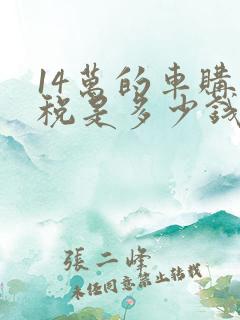 14萬的車購
稅是多少錢
張二峰
未任同意禁止转载